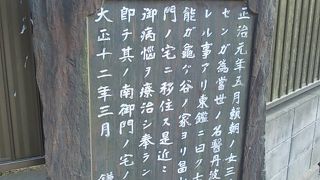 正治元年五月頼朝ノ女三
センガ為當世ノ名醫丹波
レル事アリ東鑑ニ曰ク七
能ガ龜ヶ谷ノ家ヨリ畠
門ノ宅ニ移住ス是近ミ
御病惱ヲ療治シ奉ラン
即チ其ノ南御門ノ宅ノ
大正十二年三月 鎌